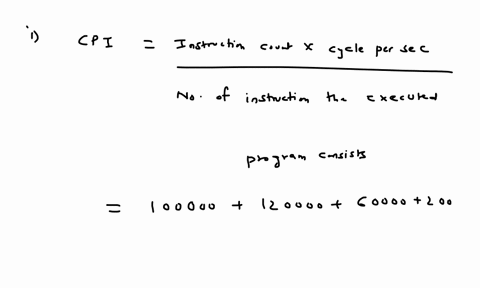 i) CPI = Instruction count × cycle per sec
No. of instruction the executed
program consists
= 100000 + 120000 + 60000 + 200